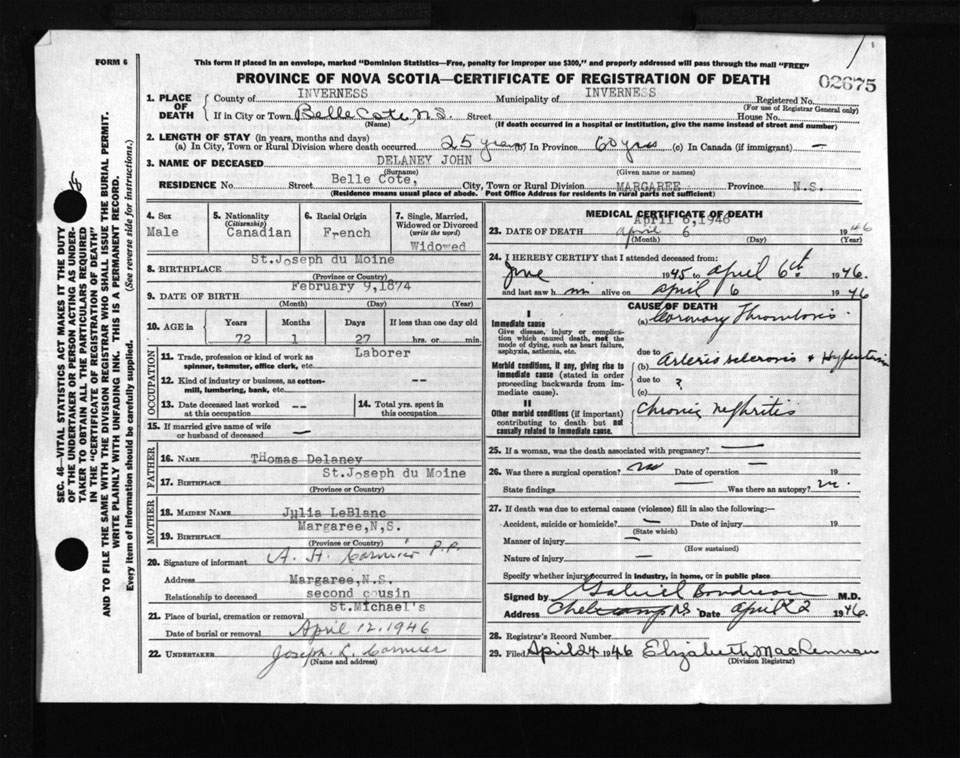 FORM 6
This form if placed in an envelope, marked "Dominion Statistics—Free, penalty for improper use $300," and properly addressed will pass through the mail "FREE"
PROVINCE OF NOVA SCOTIA—CERTIFICATE OF REGISTRATION OF DEATH
02675
1. PLACE OF DEATH
County of INVERNESS Municipality of INVERNESS Registered No.
(For use of Registrar General only)
If in City or Town Belle Cote, N.S. Street House No.
(Name) (If death occurred in a hospital or institution, give the name instead of street and number)
2. LENGTH OF STAY (in years, months and days)
(a) In City, Town or Rural Division where death occurred 25 years (b) In Province 60 yrs (c) In Canada (if immigrant) —
3. NAME OF DECEASED DELANEY JOHN
(Surname) (Given name or names)
RESIDENCE No. Street Belle Cote, City, Town or Rural Division MARGAREE Province N.S.
(Residence means usual place of abode. Post Office Address for residents in rural parts not sufficient)
4. Sex
Male
5. Nationality
(Citizenship)
Canadian
6. Racial Origin
French
7. Single, Married, Widowed or Divorced
(write the word)
Widowed
8. BIRTHPLACE St.Joseph du Moine
(Province or Country)
9. DATE OF BIRTH February 9,1874
(Month) (Day) (Year)
10. AGE in
Years Months Days If less than one day old
72 1 27 hrs. or min.
OCCUPATION
11. Trade, profession or kind of work as Laborer
spinner, teamster, office clerk, etc.
12. Kind of industry or business, as cotton-
mill, lumbering, bank, etc. --
13. Date deceased last worked
at this occupation --
14. Total yrs. spent in
this occupation
15. If married give name of wife
or husband of deceased —
FATHER
16. Name Thomas Delaney
17. Birthplace St.Joseph du Moine
(Province or Country)
MOTHER
18. Maiden Name Julia LeBlanc
19. Birthplace Margaree,N,S.
(Province or Country)
20. Signature of informant A. H. Cormier P.P.
Address Margaree,N.S.
Relationship to deceased second cousin
21. Place of burial, cremation or removal St.Michael's
Date of burial or removal April 12, 1946
22. UNDERTAKER Joseph L. Cormier
(Name and address)
MEDICAL CERTIFICATE OF DEATH
April 6,1946
23. DATE OF DEATH April 6 1946
(Month) (Day) (Year)
24. I HEREBY CERTIFY that I attended deceased from:
June 1945 to April 6th 1946.
and last saw h im alive on April 6 1946
CAUSE OF DEATH
I
Immediate cause
Give disease, injury or complication which caused death, not the mode of dying, such as heart failure, asphyxia, asthenia, etc.
(a) Coronary Thrombosis
due to
Morbid conditions, if any, giving rise to immediate cause (stated in order proceeding backwards from immediate cause).
(b) Arteriosclerosis & Hypertension
due to ?
(c)
II
Other morbid conditions (if important) contributing to death but not causally related to immediate cause.
Chronic nephritis
25. If a woman, was the death associated with pregnancy? —
26. Was there a surgical operation? no Date of operation — 19
State findings — Was there an autopsy? no
27. If death was due to external causes (violence) fill in also the following:—
Accident, suicide or homicide? — Date of injury 19
(State which)
Manner of injury —
(How sustained)
Nature of injury —
Specify whether injury occurred in industry, in home, or in public place
Signed by Gabriel Boudreau M.D.
Address Cheticamp NS Date April 2 1946.
28. Registrar's Record Number
29. Filed April 24 1946 Elizabeth MacLennan
(Division Registrar)
SEC. 46—VITAL STATISTICS ACT MAKES IT THE DUTY
OF THE UNDERTAKER OR PERSON ACTING AS UNDER-
TAKER TO OBTAIN ALL THE PARTICULARS REQUIRED
IN THE "CERTIFICATE OF REGISTRATION OF DEATH"
AND TO FILE THE SAME WITH THE DIVISION REGISTRAR WHO SHALL ISSUE THE BURIAL PERMIT.
WRITE PLAINLY WITH UNFADING INK. THIS IS A PERMANENT RECORD.
Every item of information should be carefully supplied. (See reverse side for instructions.)